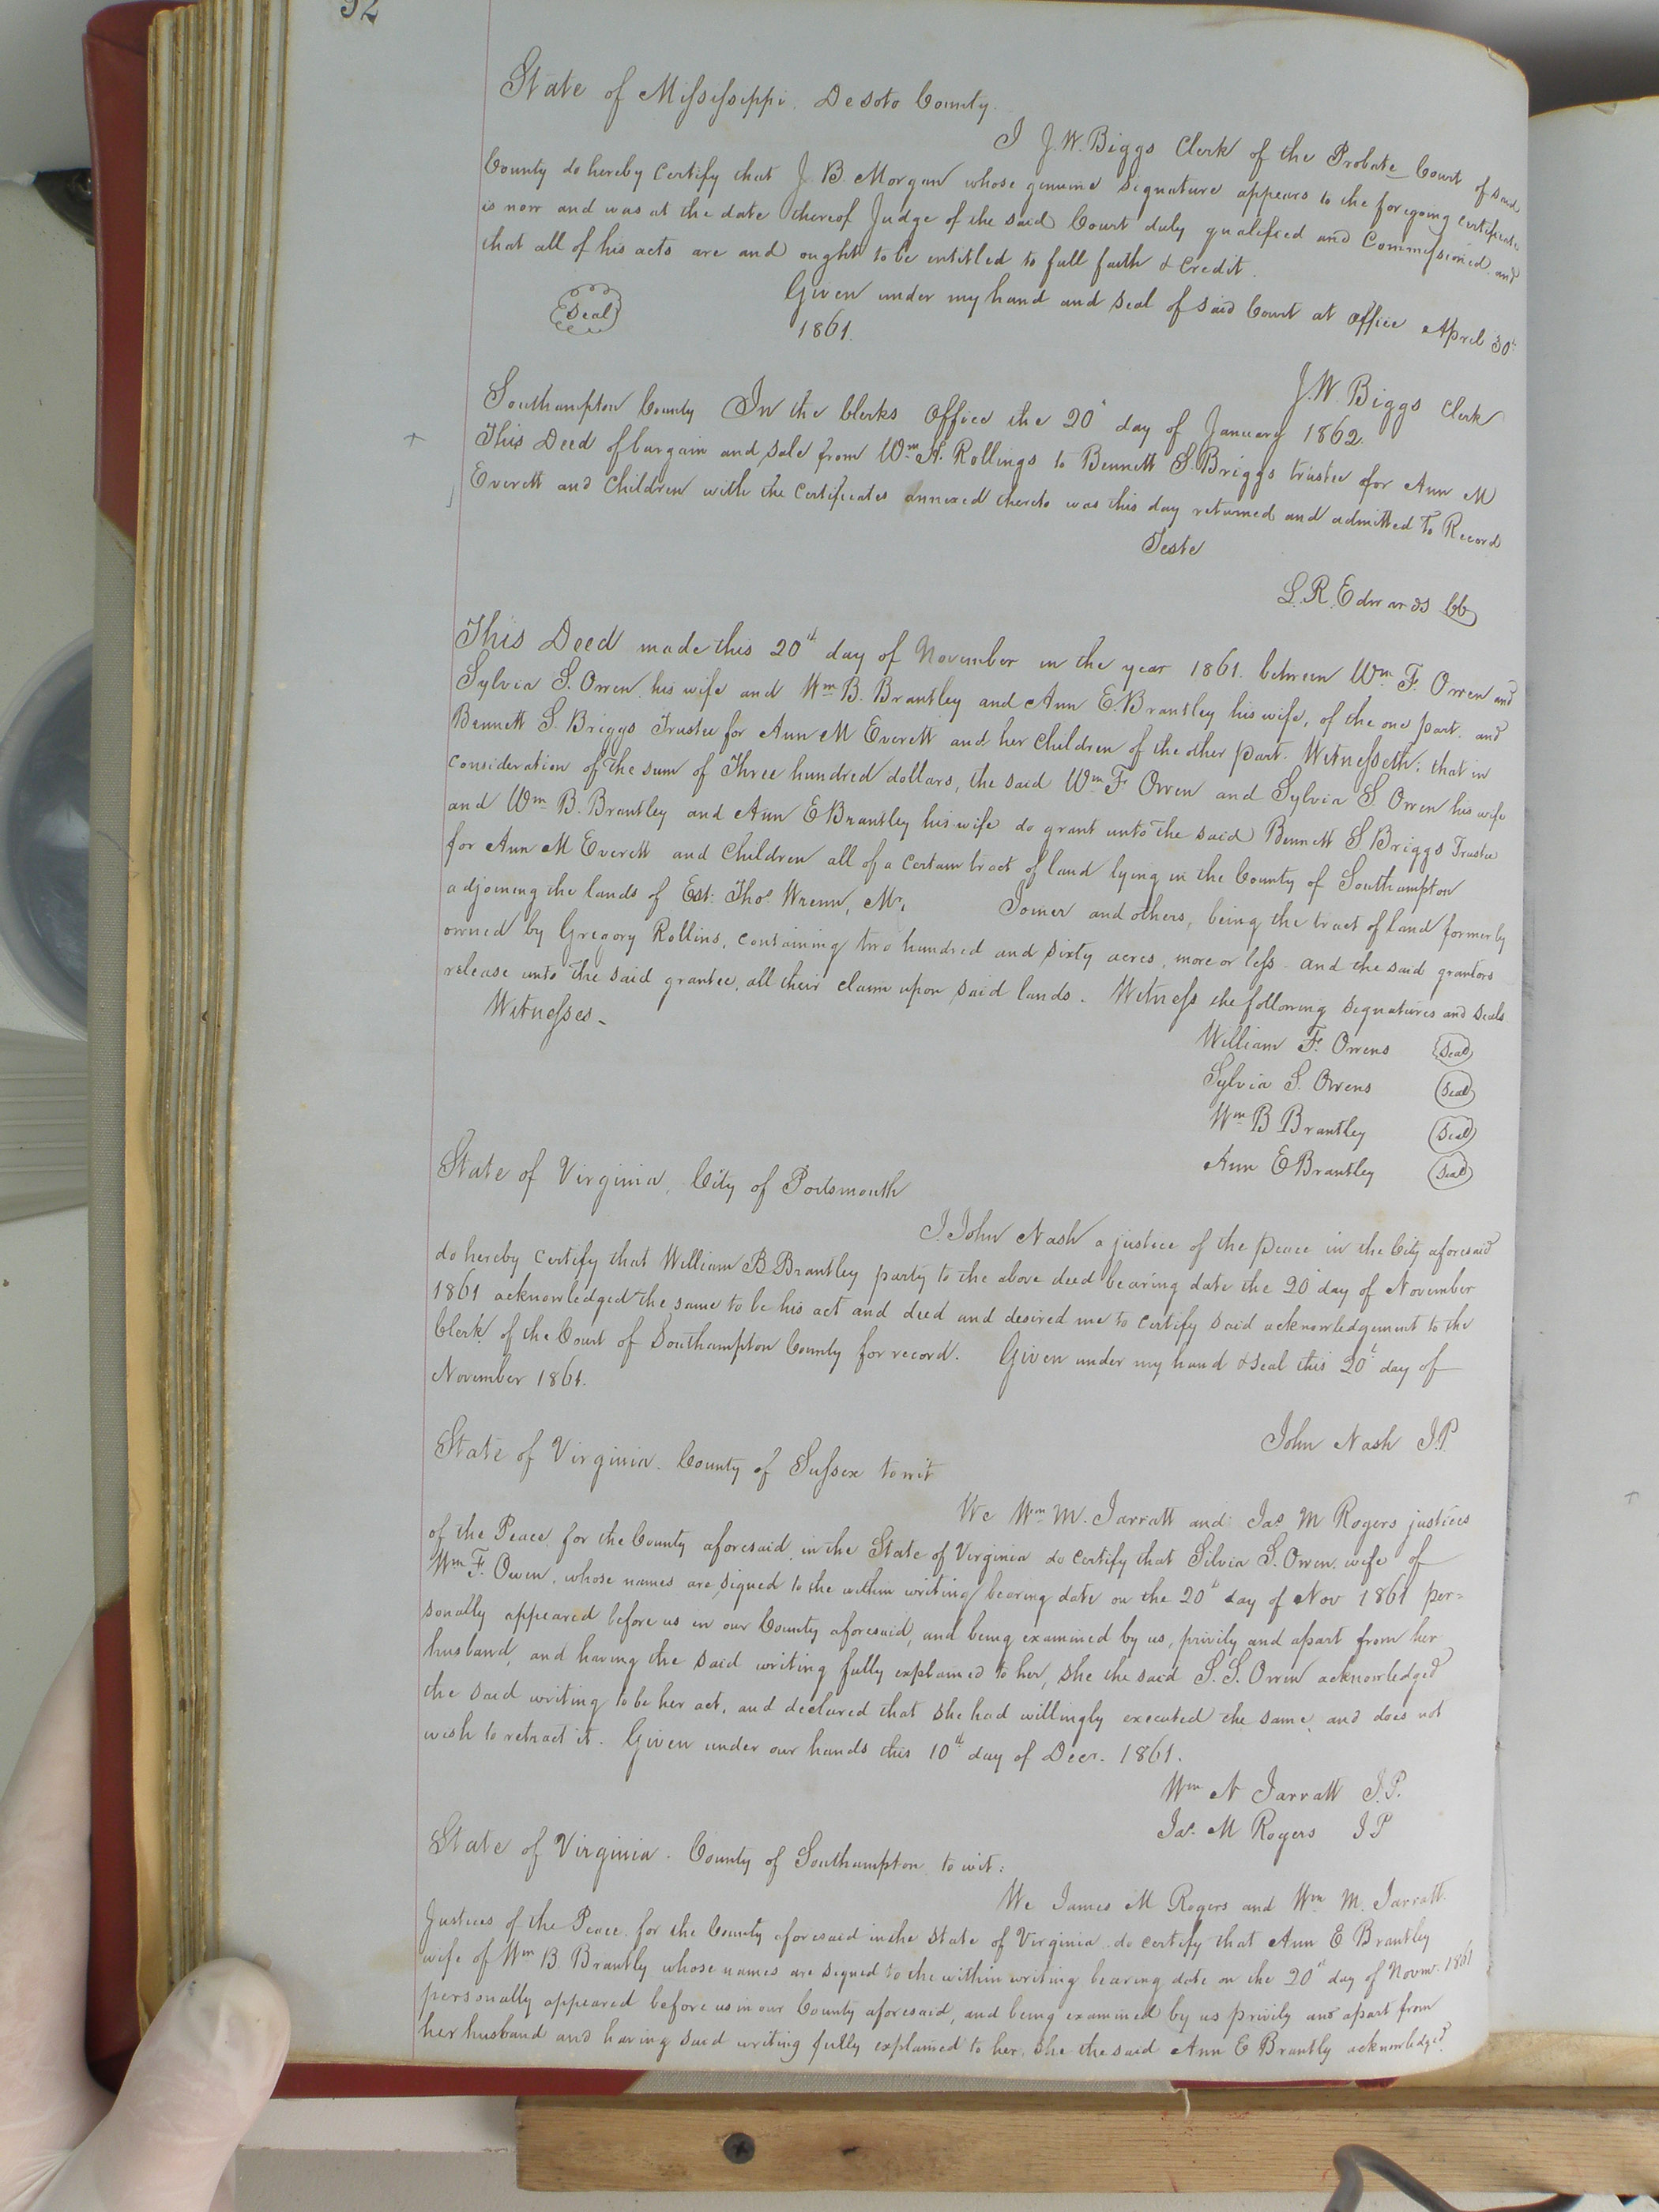 92
State of Mississippi. Desoto County.
I J. W. Biggs Clerk of the Probate Court of said
County do hereby Certify that J. B. Morgan whose genuine signature appears to the foregoing certificate
is now and was at the date thereof Judge of the said Court duly qualified and Commissioned and
that all of his acts are and ought to be entitled to full faith & credit.
Given under my hand and seal of said Court at office April 30th
Seal
1861.
J. W. Biggs Clerk
Southampton County In the Clerks Office the 20th day of January 1862.
This Deed of bargain and sale from Wm. A. Rollings to Bennett S. Briggs trustee for Ann M
Everett and Children with the Certificates annexed thereto was this day returned and admitted To Record
Teste
L. R. Edwards CC
This Deed made this 20th day of November in the year 1861. between Wm. F. Owen and
Sylvia S. Owen his wife and Wm B. Brantley and Ann E. Brantley his wife, of the one part. and
Bennett S. Briggs Trustee for Ann M Everett and her Children of the other part. Witnesseth: that in
consideration of the sum of Three hundred dollars, the said Wm F Owen and Sylvia S. Owen his wife
and Wm B. Brantley and Ann E Brantley his wife do grant unto the said Bennett S. Briggs Trustee
for Ann M Everett and Children all of a certain tract of land lying in the County of Southampton
adjoining the lands of Est. Thos. Wrenn, Mr. Joiner and others, being the tract of land formerly
owned by Gregory Rollins, containing two hundred and sixty acres, more or less and the said grantors
release unto the said grantee, all their claim upon said lands. Witness the following signatures and seals.
Witnesses-
William F. Owens Seal
Sylvia S. Owens Seal
Wm B Brantley Seal
Ann E Brantley Seal
State of Virginia, City of Portsmouth
I. John Nash a justice of the peace in the City aforesaid
do hereby certify that William B. Brantley party to the above deed bearing date the 20th day of November
1861 acknowledged the same to be his act and deed and desired me to certify said acknowledgement to the
Clerk of the Court of Southampton County for record. Given under my hand & seal this 20th day of
November 1861.
John Nash J.P.
State of Virginia. County of Sussex towit
We Wm M. Jarratt and Jas M Rogers justices
of the Peace for the County aforesaid in the State of Virginia do certify that Silvia S. Owen, wife of
Wm F. Owen, whose names are signed to the within writing bearing date on the 20th day of Nov 1861 per=
sonally appeared before us in our County aforesaid, and being examined by us, privily and apart from her
husband, and having the said writing fully explained to her, she the said S. S. Owen acknowledged
the said writing to be her act, and declared that she had willingly executed the same, and does not
wish to retract it. Given under our hands this 10th day of Decr. 1861.
Wm N Jarratt J.P.
Jas. M Rogers J P
State of Virginia. County of Southampton to wit:
We James M Rogers and Wm M. Jarratt
Justices of the Peace for the County aforesaid in the State of Virginia do certify that Ann E Brantley
wife of Wm B. Brantly whose names are signed to the within writing bearing date on the 20th day of Novm. 1861
personally appeared before us in our County aforesaid, and being examined by us privily and apart from
her husband and having said writing fully explained to her, she the said Ann E Brantly acknowledged